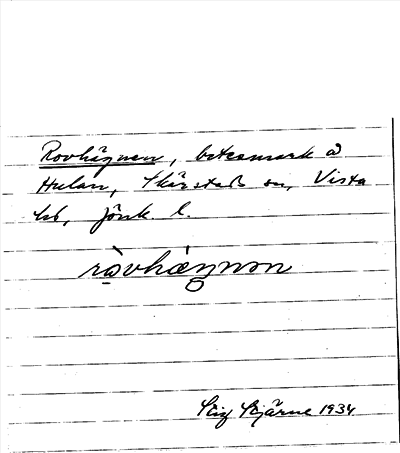 Rovhägnen, betesmark å
Hulan, Skärstads sn, Vista
hd, Jönk l.
ròvhæŋnən
Stig Stjärne 1934